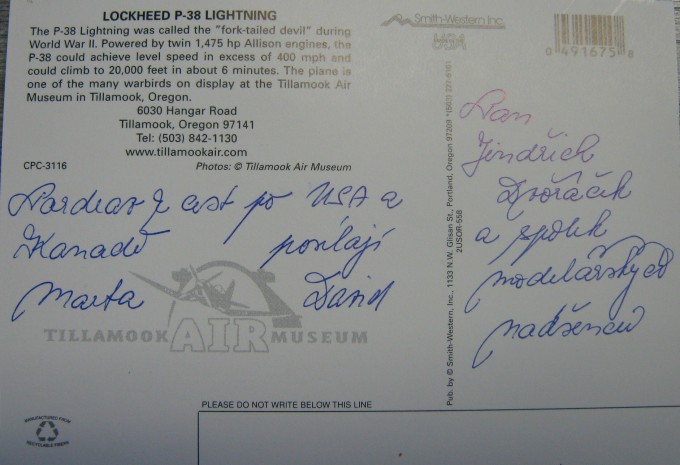 LOCKHEED P-38 LIGHTNING
The P-38 Lightning was called the "fork-tailed devil" during
World War II. Powered by twin 1,475 hp Allison engines, the
P-38 could achieve level speed in excess of 400 mph and
could climb to 20,000 feet in about 6 minutes. The plane is
one of the many warbirds on display at the Tillamook Air
Museum in Tillamook, Oregon.
6030 Hangar Road
Tillamook, Oregon 97141
Tel: (503) 842-1130
www.tillamookair.com
CPC-3116 Photos: © Tillamook Air Museum
Pozdrav z cest po USA a
Kanadě posílají
Marta David
TILLAMOOK AIR MUSEUM
MANUFACTURED FROM
RECYCLABLE FIBERS
PLEASE DO NOT WRITE BELOW THIS LINE
Pub. by © Smith-Western, Inc., 1133 N.W. Glisan St., Portland, Oregon 97209
2USOR-558
Smith-Western Inc.
USA
0 491675
Pan
Jindřich
Dvořáček
a spolek
modelářských
nadšenců